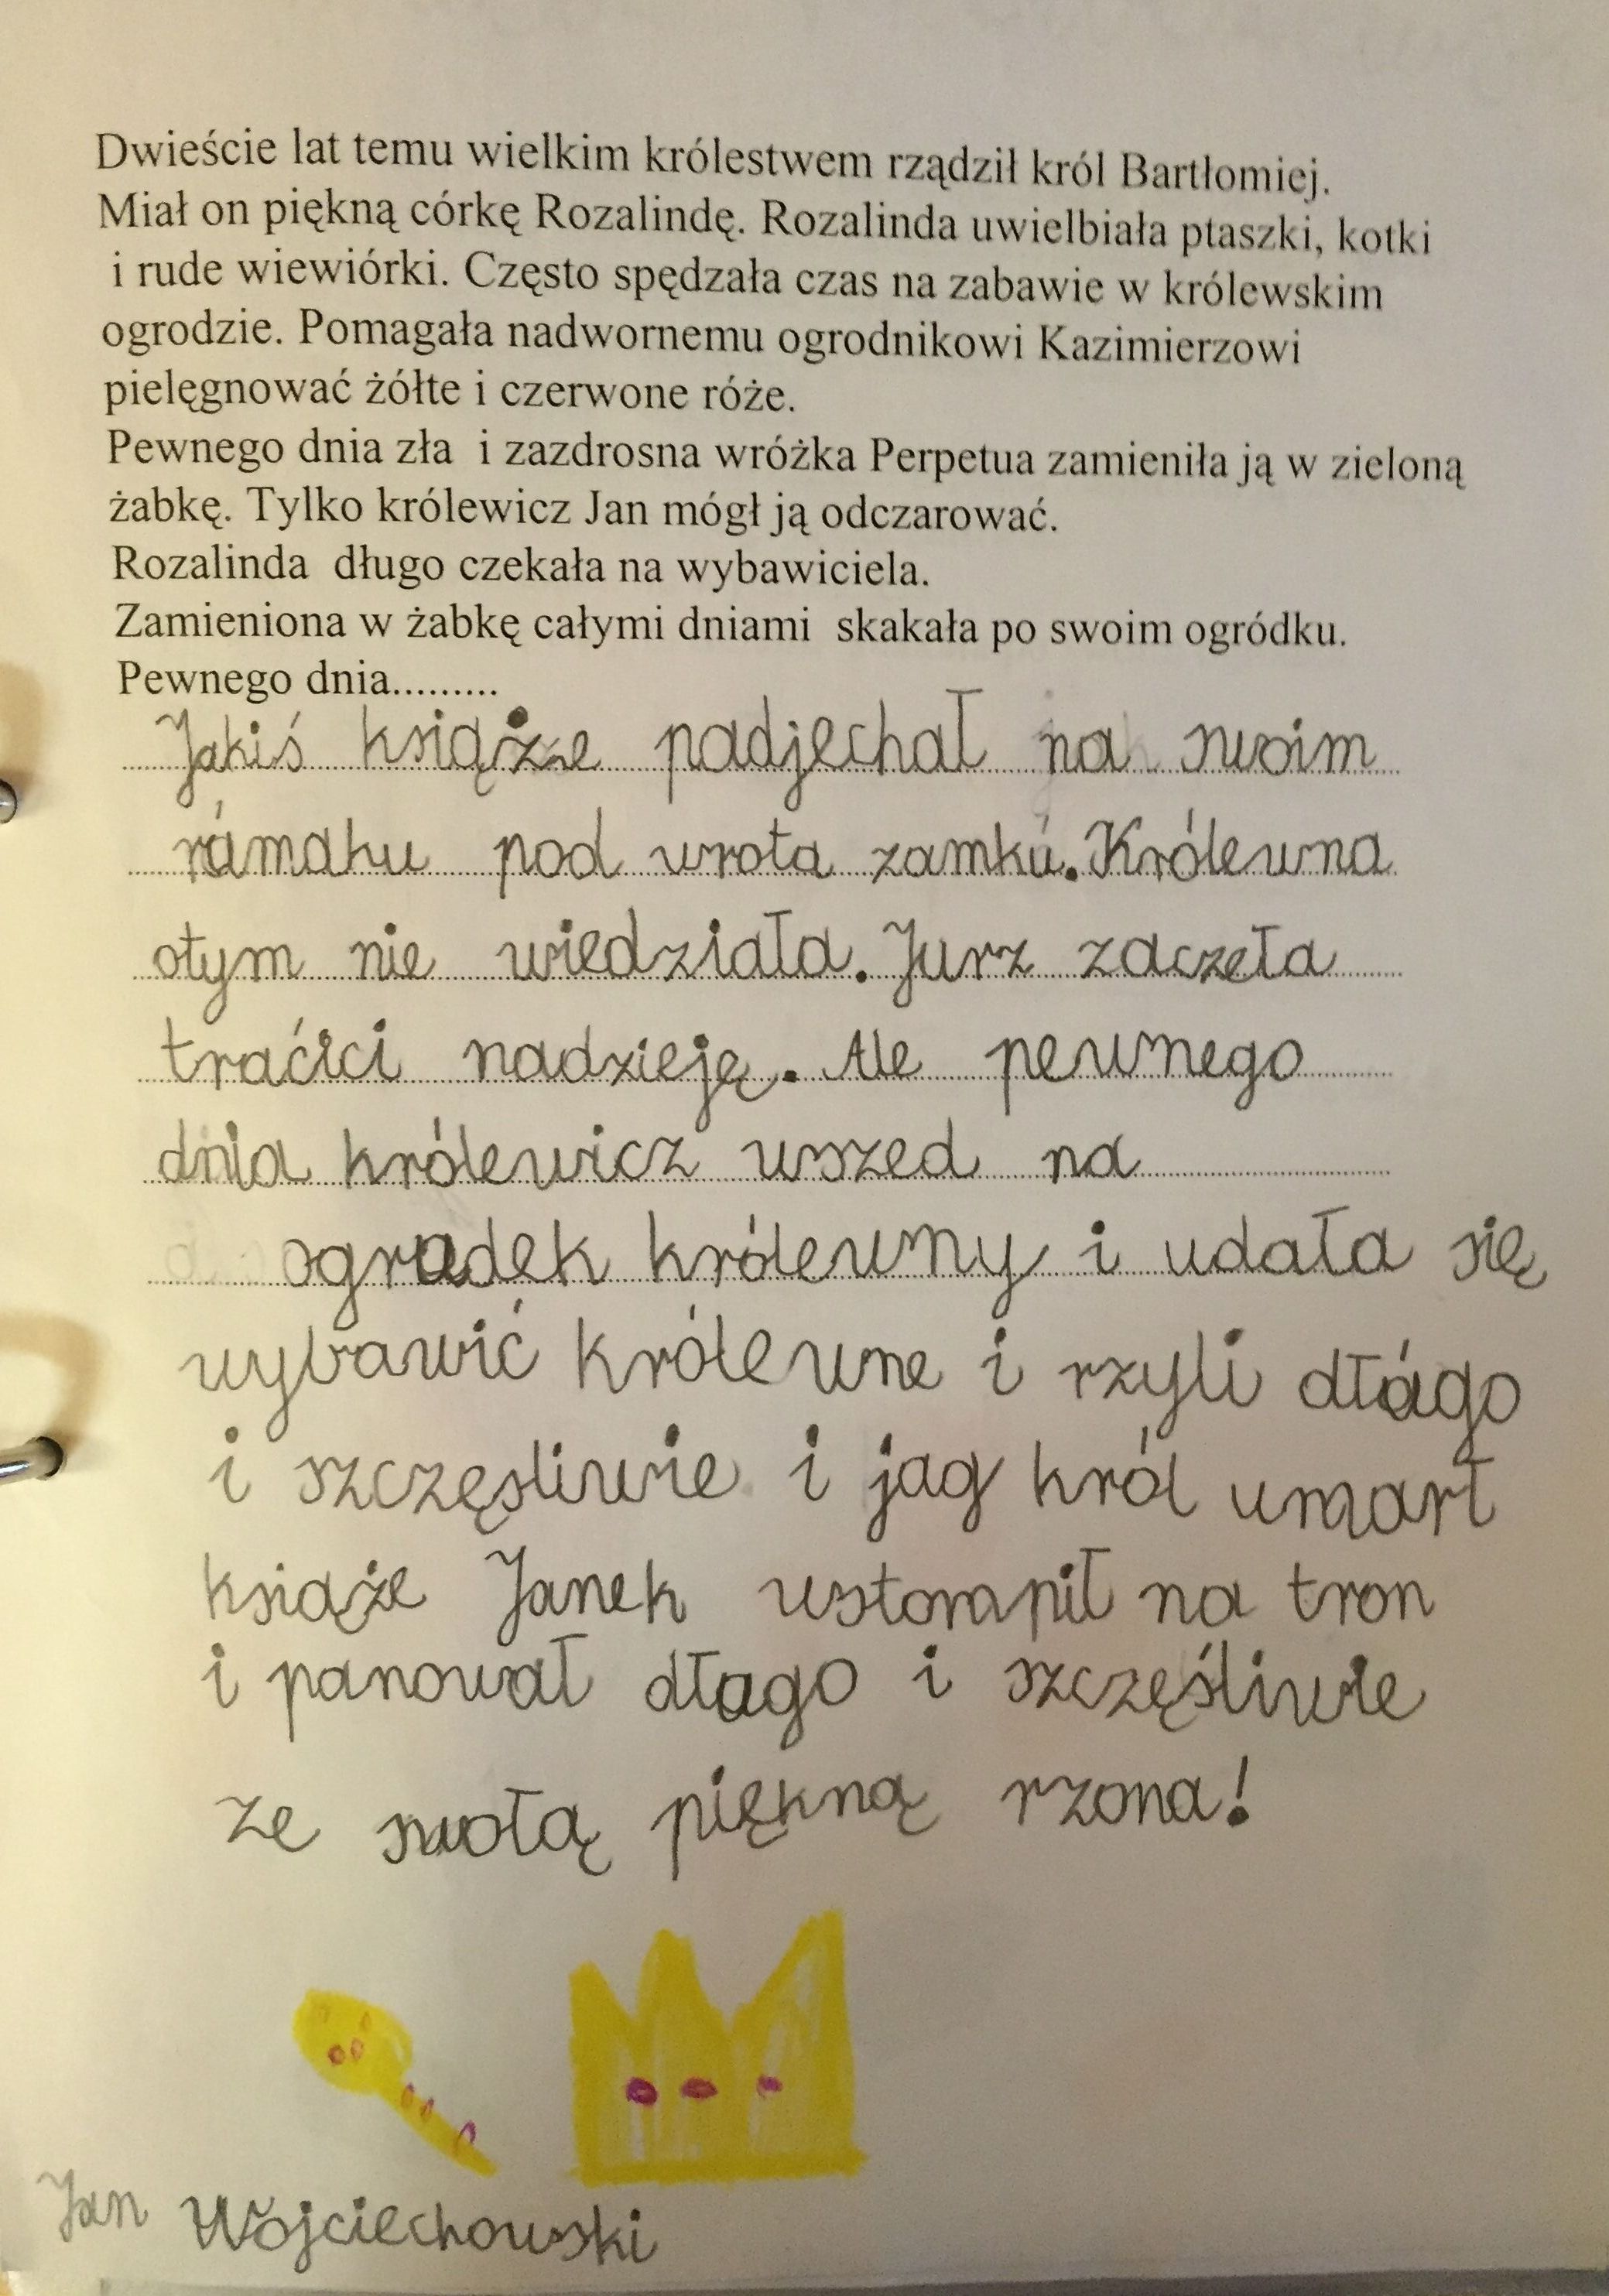 Dwieście lat temu wielkim królestwem rządził król Bartłomiej.
Miał on piękną córkę Rozalindę. Rozalinda uwielbiała ptaszki, kotki
i rude wiewiórki. Często spędzała czas na zabawie w królewskim
ogrodzie. Pomagała nadwornemu ogrodnikowi Kazimierzowi
pielęgnować żółte i czerwone róże.
Pewnego dnia zła i zazdrosna wróżka Perpetua zamieniła ją w zieloną
żabkę. Tylko królewicz Jan mógł ją odczarować.
Rozalinda długo czekała na wybawiciela.
Zamieniona w żabkę całymi dniami skakała po swoim ogródku.
Pewnego dnia.........
Jakiś książe padjechał na swoim
rumaku pod wrota zamku. Królewna
otym nie wiedziała. Jurz zaczeła
traćici nadzieję. Ale pewnego
dnia królewicz wszed na
ogrudek królewny i udała się
wybawić królewne i rzyli długo
i szczęsliwie i jag król umarł
książe Janek wstompił na tron
i panował długo i szczęśliwie
ze swołą piękną rzona!
Jan Wojciechowski